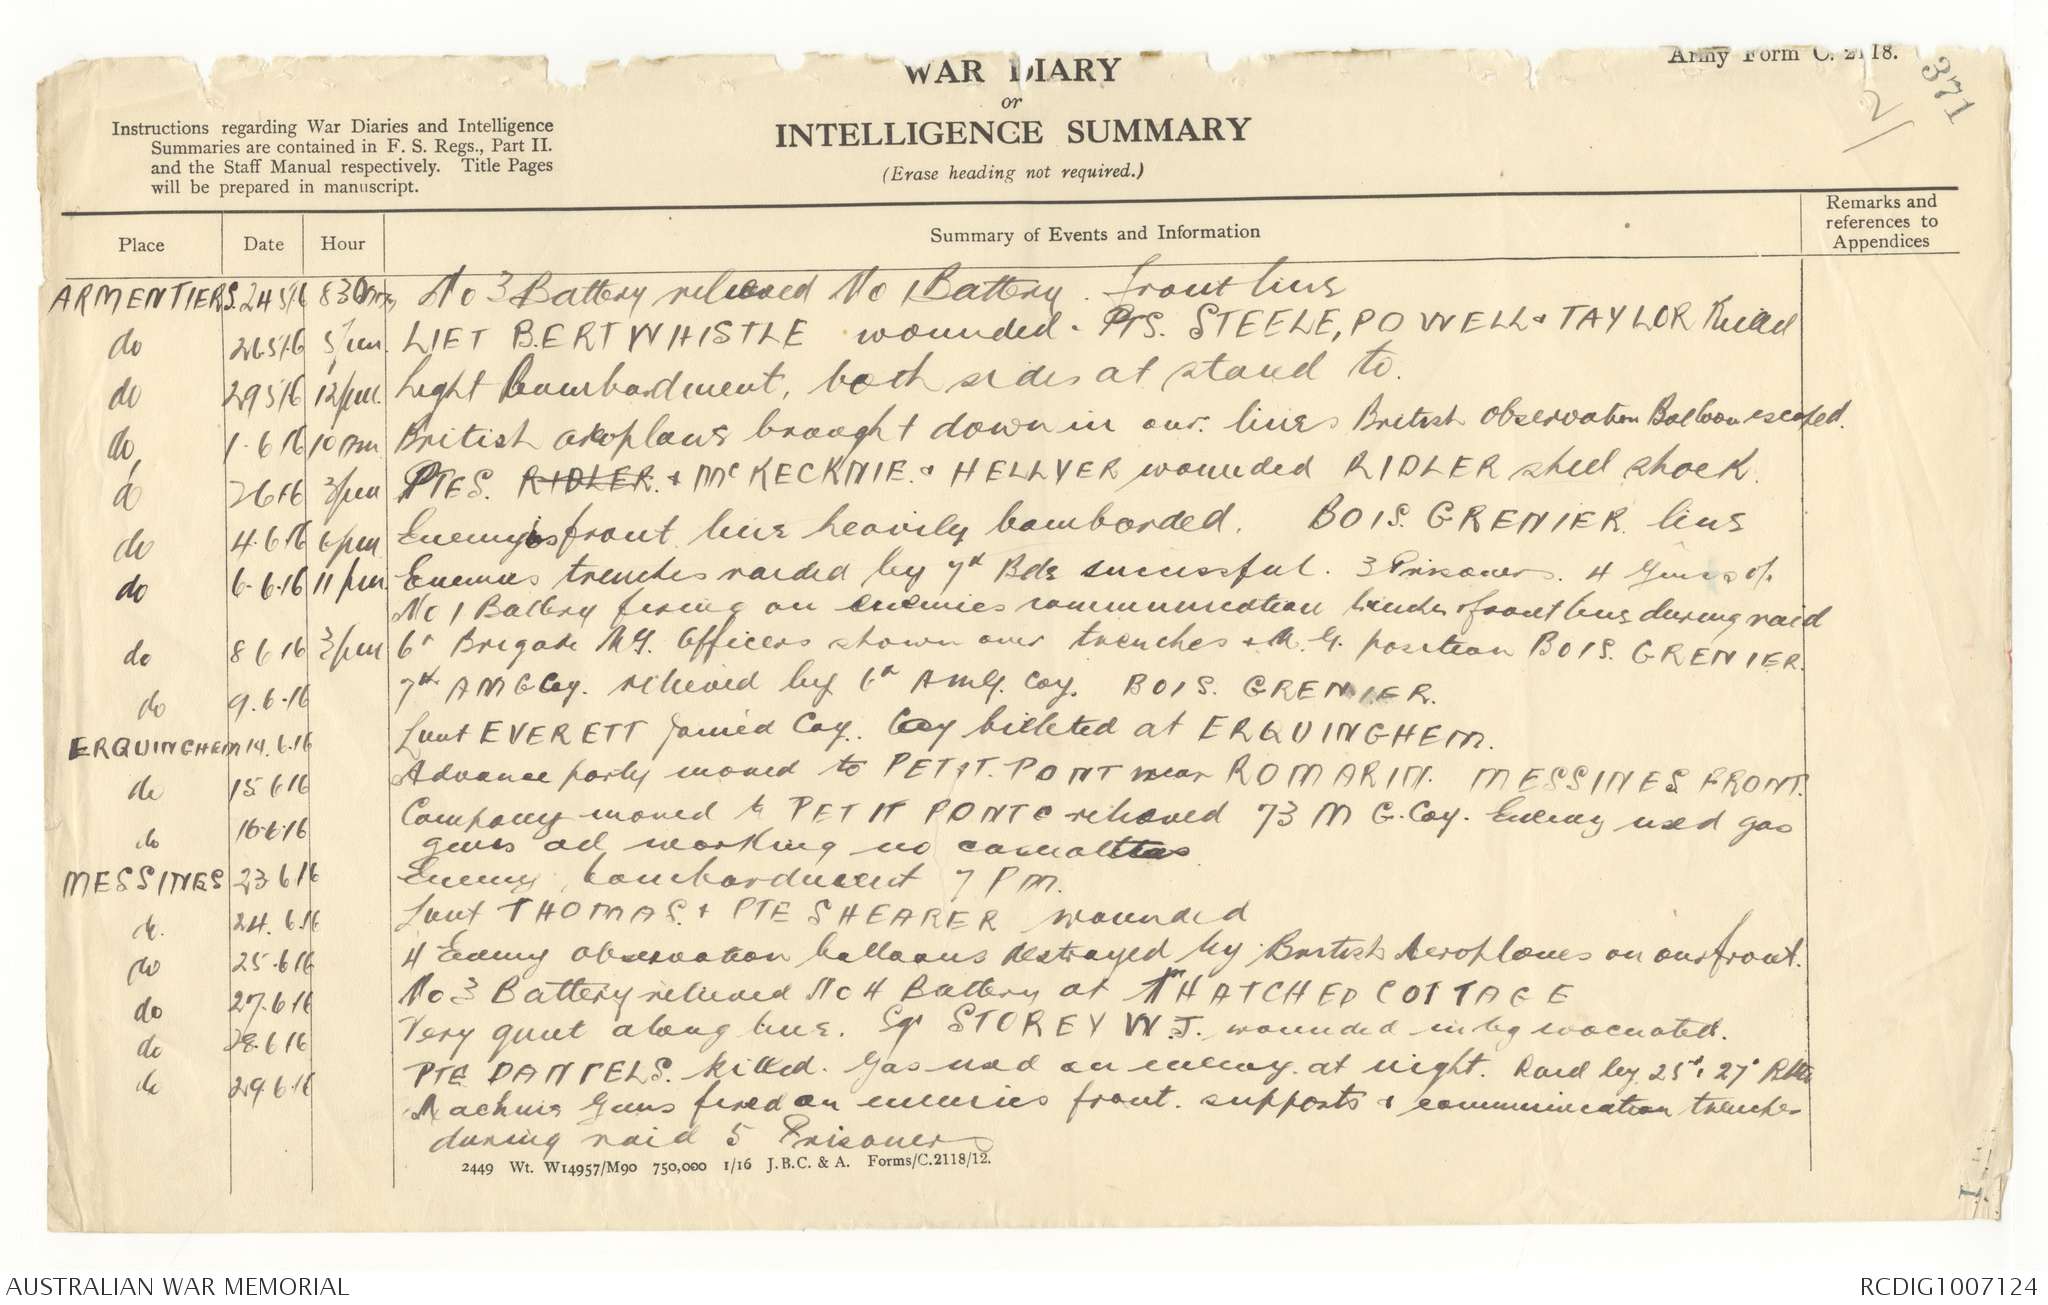 Army Form C. 2118.
371
2/
WAR DIARY
or
INTELLIGENCE SUMMARY
(Erase heading not required.)
Instructions regarding War Diaries and Intelligence
Summaries are contained in F. S. Regs., Part II.
and the Staff Manual respectively. Title Pages
will be prepared in manuscript.
Place Date Hour Summary of Events and Information Remarks and references to Appendices
ARMENTIERS. 24 5 16 8 30 No 3 Battery relieved No 1 Battery. front line
do 26 5 16 5 pm. LIET BERTWHISTLE wounded. PTS. STEELE, POWELL & TAYLOR Killed
do 29 5 16 12 pm. Light Bombardment, both sides at stand to.
do, 1. 6 16 10 British aroplane brought down in our lines British observation Balloon escaped.
d 2 6 16 3 pm PTES. RIDLER. & McKECKNIE. & HELLYER wounded RIDLER shell shock.
do 4. 6. 16 6 pm Enemy's front line heavily bombarded. BOIS. GRENIER. line
do 6. 6. 16 11 pm Enemies trenches raided by 7th Bde successful. 3 Prisoners. 4 Guns of
No 1 Battery firing on enemies communication trenches & front line during raid
do 8 6 16 3 pm 6th Brigade M G. Officers shown over trenches & M. G. position BOIS. GRENIER.
do 9. 6. 16 7th AMG Coy. relieved by 6th AMG. Coy. BOIS. GRENIER.
ERQUINGHEM 14. 6. 16 Lieut EVERETT joined Coy. Coy billeted at ERQUINGHEM.
do 15 6 16 Advance party moved to PETIT. PONT near ROMARIN. MESSINES FRONT.
do 16. 6. 16 Company moved to PETIT PONT & relieved 73 M G. Coy. Enemy used gas
guns all working no casualties
MESSINES 23 6 16 Enemy bombardment 7 PM.
do. 24. 6. 16 Lieut THOMAS. & PTE SHEARER wounded
do 25. 6 16 4 Enemy observation balloons destroyed by British Aeroplanes on our front.
do 27. 6 16 No 3 Battery relieved No 4 Battery at THATCHED COTTAGE
do 28. 6 16 Very quiet along line. Sgt STOREY W. J. wounded in leg evacuated.
do 29. 6. 16 PTE DANIELS. killed. Gas used on enemy at night. Raid by 25th & 27th Btts
Machine Guns fired on enemies front. supports & communication trenches
during raid 5 Prisoners
2449 Wt. W14957/M90 750,000 1/16 J.B.C. & A. Forms/C.2118/12.
AUSTRALIAN WAR MEMORIAL
RCDIG1007124